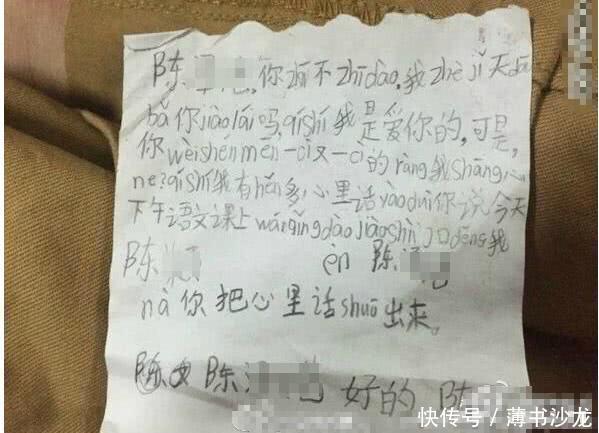 陈 ,你zhī不zhīdào,我zhè jǐ天dōu
bǎ你jiào lái吗,qíshí我是爱你的,可是,
你wèishénmen一cì又一cì的ràng我shāng心
ne?qíshí我有hěn多心里话yào duì你说今天
下午语文课上wán qǐng dào jiàoshì 口děng我
陈 èn 陈
nà你把心里话shuō出来。
陈 陈 好的 陈
快传号/薄书沙龙